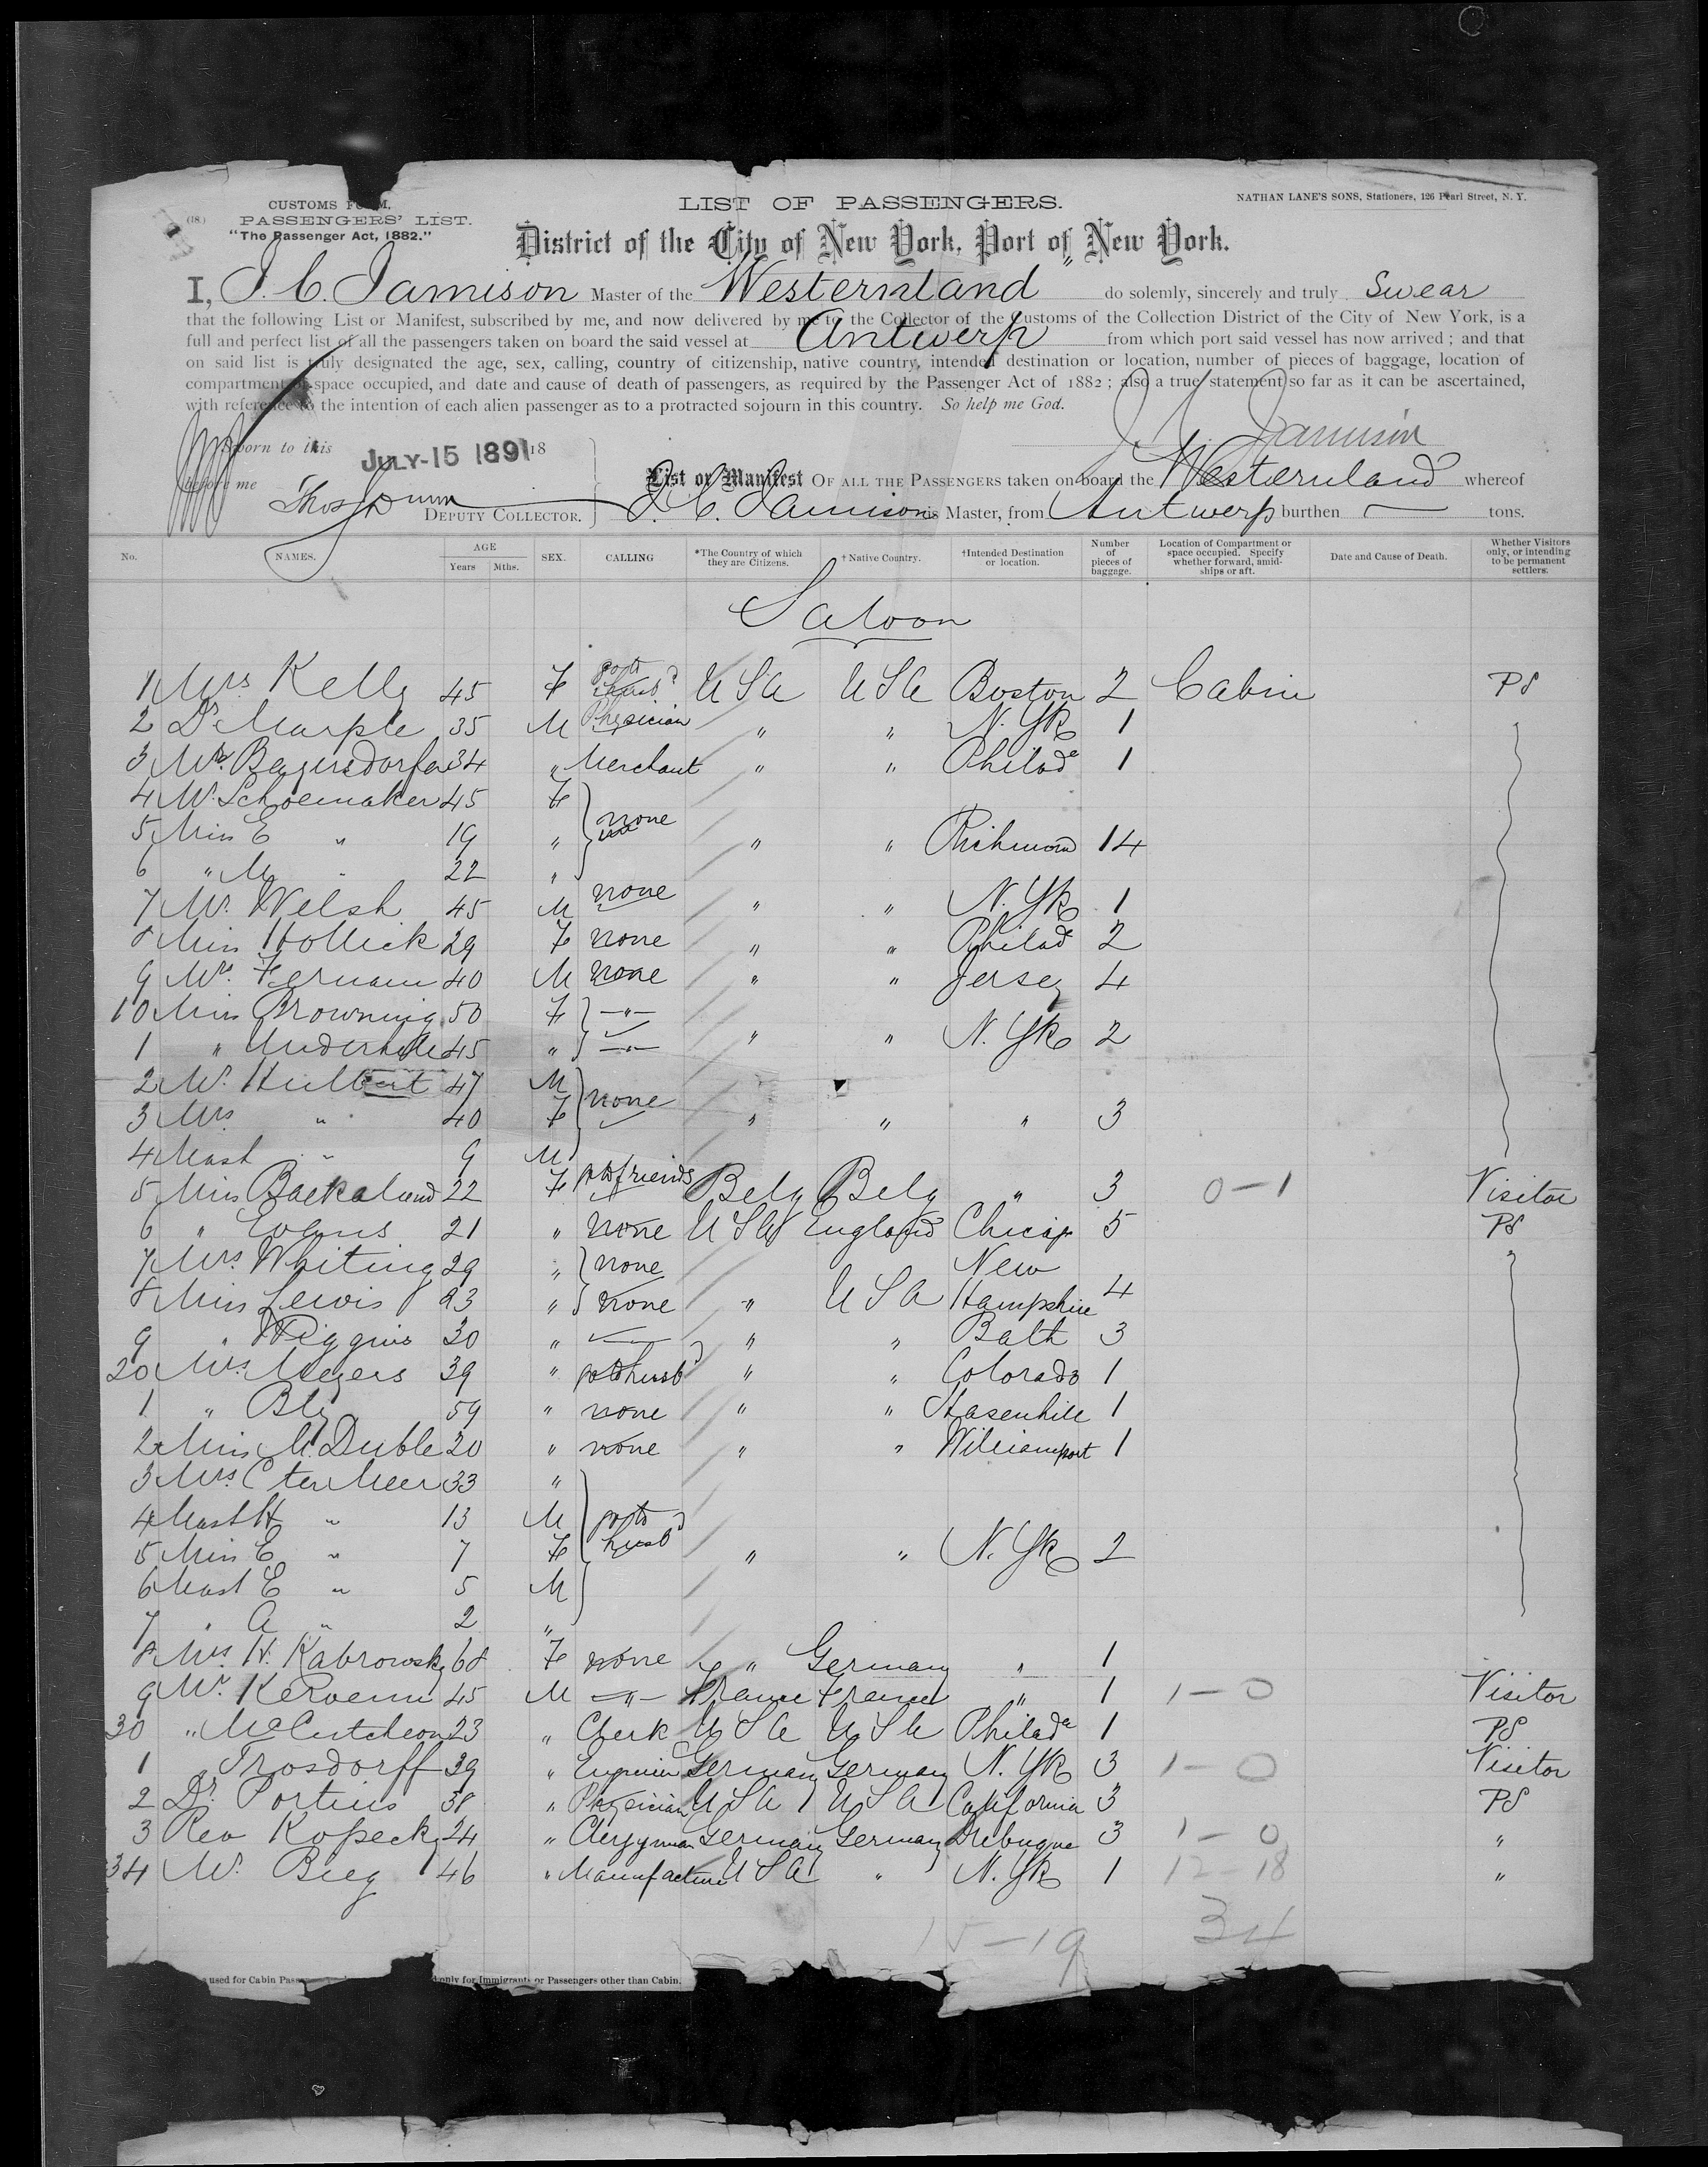 CUSTOMS FORM,
(18.) PASSENGERS' LIST.
"The Passenger Act, 1882."
LIST OF PASSENGERS.
NATHAN LANE'S SONS, Stationers, 126 Pearl Street, N. Y.
District of the City of New York, Port of New York.
I, J. C. Jamison Master of the "Westernland" do solemnly, sincerely and truly Swear
that the following List or Manifest, subscribed by me, and now delivered by me to the Collector of the Customs of the Collection District of the City of New York, is a
full and perfect list of all the passengers taken on board the said vessel at Antwerp from which port said vessel has now arrived ; and that
on said list is truly designated the age, sex, calling, country of citizenship, native country, intended destination or location, number of pieces of baggage, location of
compartment or space occupied, and date and cause of death of passengers, as required by the Passenger Act of 1882 ; also a true statement so far as it can be ascertained,
with reference to the intention of each alien passenger as to a protracted sojourn in this country. So help me God.
J. C. Jamison
Sworn to this JULY-15 1891 18
before me
List or Manifest OF ALL THE PASSENGERS taken on board the Westernland whereof
Thos Dunn DEPUTY COLLECTOR. J. C. Jamison is Master, from Antwerp burthen — tons.
No. NAMES. AGE Years Mths. SEX. CALLING *The Country of which they are Citizens. †Native Country. †Intended Destination or location. Number of pieces of baggage. Location of Compartment or space occupied. Specify whether forward, amidships or aft. Date and Cause of Death. Whether Visitors only, or intending to be permanent settlers.
Saloon
1 Mrs. Kelly 45 F go to husbd USA USA Boston 2 Cabin PS
2 Dr Marple 35 M Physician " " N. Yk 1
3 Mr. Bayersdorfer 34 " Merchant " " Philade 1
4 M. Schoemaker 45 F
5 Miss E " 19 " none " " Richmond 14
6 " M " 22 "
7 Mr. Welsh 45 M none " " N. Yk 1
8 Miss Hollick 29 F none " " Philad 2
9 Mr. Fernam 40 M none " " Jersey 4
10 Miss Browning 50 F —"—
1 " Underhill 45 " —"— " " N. Yk 2
2 Mr. Hulbert 47 M
3 Mrs " 40 F none " " " 3
4 Mast " 9 M
5 Miss Backalund 22 F to friends Belg Belg " 3 0—1 Visitor
6 " Evans 21 " none USA England Chicago 5 PS
7 Mrs. Whiting 29 " none New
8 Miss Lewis 23 " none " USA Hampshire 4
9 " Wiggins 30 " — " " Balth 3
20 Mrs. Meyers 39 " go to husbd " " Colorado 1
1 " Bly 59 " none " " 1
2 Miss M. Duble 20 " none " " Williamsport 1
3 Mrs. C ter Meer 33 "
4 Mast H " 13 M go to
5 Miss E " 7 F husbd " " N. Yk 2
6 Mast E " 5 M
7 " A " 2 "
8 Mrs. H. Kabrowsky 68 F none " Germany " 1
9 Mr. 45 M —"— France France " 1 1—0 Visitor
30 " McCutcheon 23 " Clerk USA USA Philade 1 PS
1 " Trosdorff 39 " Germany Germany N. Yk 3 1—0 Visitor
2 Dr. Portius 38 " Physician USA USA California 3 PS
3 Rev Kopecky 24 " Clergyman Germany Germany Dubuque 3 1—0 "
34 Mr. Bieg 46 " Manufacturer USA " N. Yk 1 12—18 "
15—19 34
used for Cabin Pass only for Immigrants or Passengers other than Cabin.